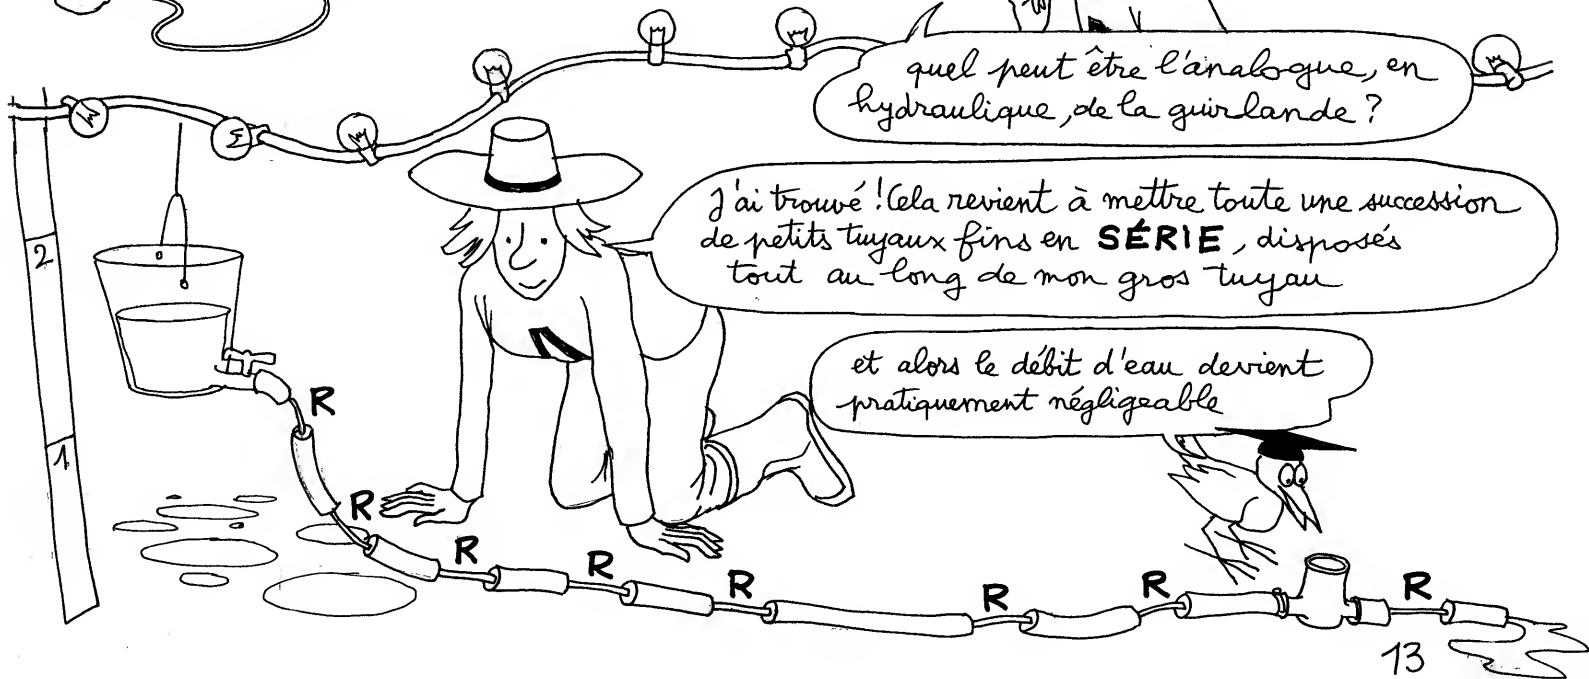 quel peut être l'analogue, en
hydraulique, de la guirlande ?
J'ai trouvé ! Cela revient à mettre toute une succession
de petits tuyaux fins en SÉRIE, disposés
tout au long de mon gros tuyau
et alors le débit d'eau devient
pratiquement négligeable
2
1
R
R
R
R
R
R
R
R
13